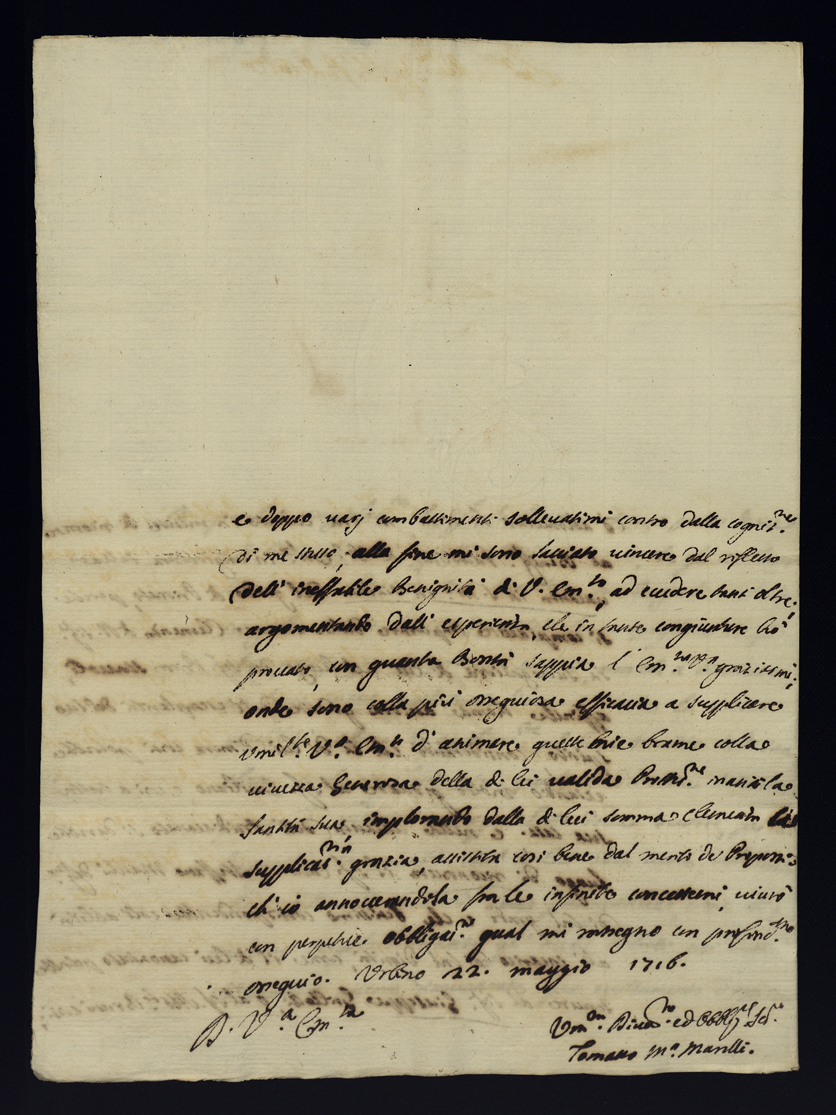 e doppo varj combattimenti sollevatimi contro dalla cogniz.ne
di me stesso, alla fine mi sono lasciato vincere dal riflesso
dell' ineffabile Benignità di V. Em.za, ad eccedere tant'oltre,
argomentando dall' esperienza, che in tante congiunture hò
provato, con quanta Bontà sappia l' Em.za V.a graziarmi;
onde sono colla più ossequiosa efficacia a supplicare
Umil.te V.a Em.za d' animare queste mie brame colla
vivezza generosa della di lei valida Protez.ne nanti la
Santità Sua, implorando dalla di lei somma Clemenza la
supplicata grazia, assistita così bene dal merito de
ch' io annoverandola fra le infinite concessemi, vivrò
con perpetue obbligaz.ni qual mi rassegno con profond.mo
ossequio. Urbino 22. maggio 1716.
D. V.a Em.za
Um.mo Divot.mo ed Obblig.mo Se.re
Tomasso M.a Marelli.